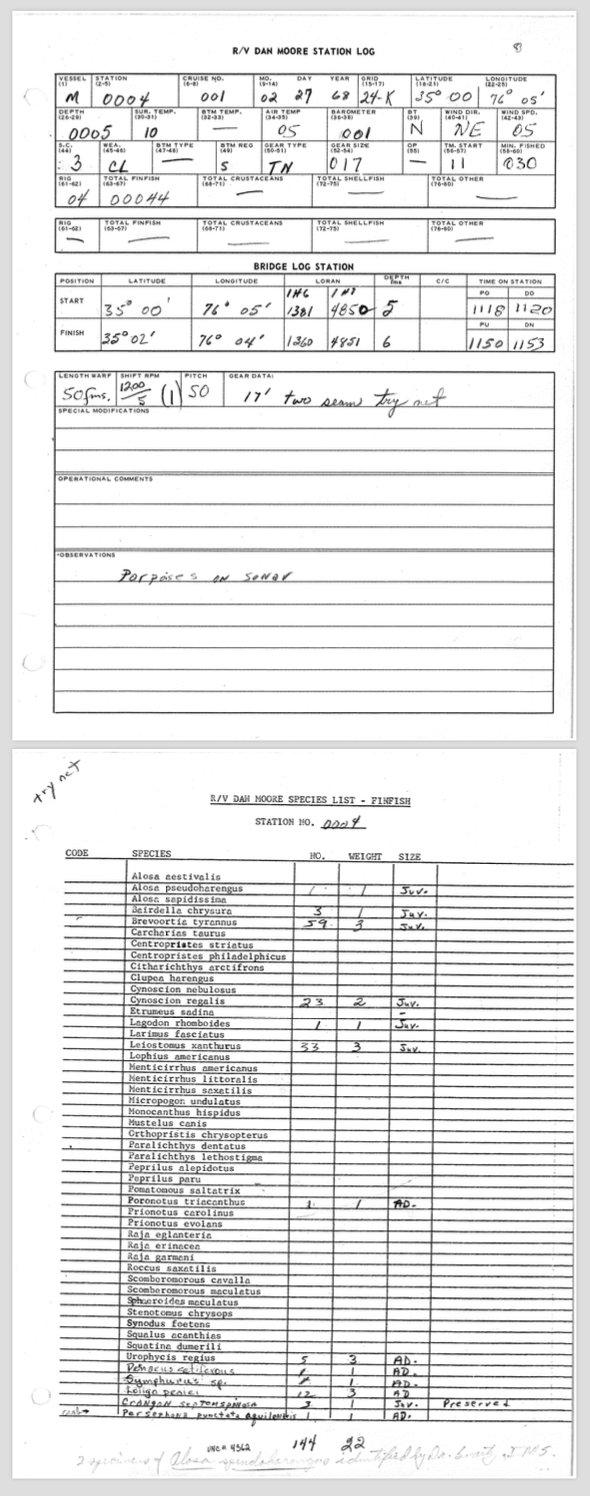 8
R/V DAN MOORE STATION LOG
VESSEL (1) STATION (2-5) CRUISE NO. (6-8) MO. (9-14) DAY YEAR GRID (15-17) LATITUDE (18-21) LONGITUDE (22-25)
M 0004 001 02 27 68 24-K 35° 00 76° 05'
DEPTH (26-29) SUR. TEMP. (30-31) BTM TEMP. (32-33) AIR TEMP (34-35) BAROMETER (36-38) BT (39) WIND DIR. (40-41) WIND SPD. (42-43)
0005 10 — 05 001 N NE 05
S.C. (44) WEA. (45-46) BTM TYPE (47-48) BTM REG (49) GEAR TYPE (50-51) GEAR SIZE (52-54) OP (55) TM. START (56-57) MIN. FISHED (58-60)
3 CL — S TN 017 — 11 030
RIG (61-62) TOTAL FINFISH (63-67) TOTAL CRUSTACEANS (68-71) TOTAL SHELLFISH (72-75) TOTAL OTHER (76-80)
04 00044 — — —
RIG (61-62) TOTAL FINFISH (63-67) TOTAL CRUSTACEANS (68-71) TOTAL SHELLFISH (72-75) TOTAL OTHER (76-80)
— — — — —
BRIDGE LOG STATION
POSITION LATITUDE LONGITUDE LORAN DEPTH fms C/C TIME ON STATION
1H6 1H7 PO DO
START 35° 00' 76° 05' 1381 4850 5 1118 1120
PU DN
FINISH 35° 02' 76° 04' 1360 4851 6 1150 1153
LENGTH WARP SHIFT RPM PITCH GEAR DATA:
50 fms. 1200/5 (1) 50 17' two seam try net
SPECIAL MODIFICATIONS
OPERATIONAL COMMENTS
OBSERVATIONS
Porpoises on sonar
try net
R/V DAN MOORE SPECIES LIST - FINFISH
STATION NO. 0004
CODE SPECIES NO. WEIGHT SIZE
Alosa aestivalis
Alosa pseudoharengus 1 1 Juv.
Alosa sapidissima
Bairdella chrysura 3 1 Juv.
Brevoortia tyrannus 59 3 Juv.
Carcharias taurus
Centropristes striatus
Centropristes philadelphicus
Citharichthys arctifrons
Clupea harengus
Cynoscion nebulosus
Cynoscion regalis 23 2 Juv.
Etrumeus sadina —
Lagodon rhomboides 1 1 Juv.
Larimus fasciatus
Leiostomus xanthurus 33 3 Juv.
Lophius americanus
Menticirrhus americanus
Menticirrhus littoralis
Menticirrhus saxatilis
Micropogon undulatus
Monocanthus hispidus
Mustelus canis
Orthopristis chrysopterus
Paralichthys dentatus
Paralichthys lethostigma
Peprilus alepidotus
Peprilus paru
Pomatomous saltatrix
Poronotus triacanthus 1 1 AD.
Prionotus carolinus
Prionotus evolans
Raja eglanteria
Raja erinacea
Raja garmani
Roccus saxatilis
Scomberomorous cavalla
Scomberomorous maculatus
Sphaeroides maculatus
Stenotomus chrysops
Synodus foetens
Squalus acanthias
Squatina dumerili
Urophycis regius 5 3 AD.
Penaeus setiferous 1 AD.
Symphurus sp. 1 AD.
Loligo pealei 12 3 AD
Crangon septemspinosa 3 1 Juv. Preserved
Persephona punctata aquilonaris 1 1 AD.
UNC # 4362 144 22
2 specimens of Alosa pseudoharengus identified by Dr. I.M.S.